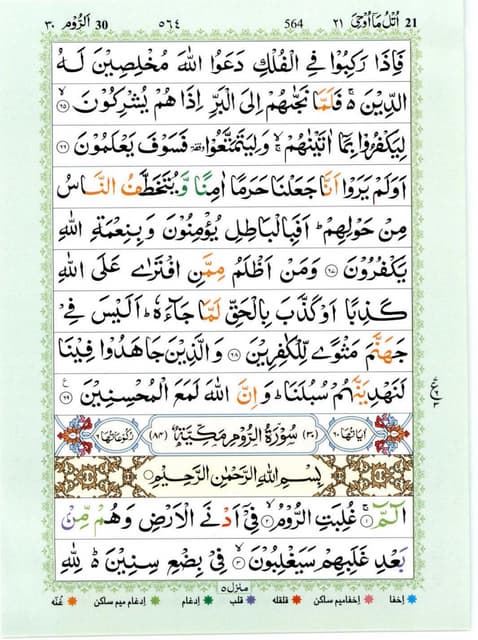 اُتْلُ مَاۤ اُوْحِیَ ٢١ 21
564
٥٦٤
اَلرُّوْم ٣٠ 30
فَاِذَا رَكِبُوْا فِی الْفُلْكِ دَعَوُا اللّٰهَ مُخْلِصِیْنَ لَهُ
الدِّیْنَ ۚ۬ فَلَمَّا نَجّٰىهُمْ اِلَی الْبَرِّ اِذَا هُمْ یُشْرِكُوْنَ ۙ﴿٦٥﴾
لِیَكْفُرُوْا بِمَاۤ اٰتَیْنٰهُمْ ۚۙ وَلِیَتَمَتَّعُوْا ٝ فَسَوْفَ یَعْلَمُوْنَ ﴿٦٦﴾
اَوَلَمْ یَرَوْا اَنَّا جَعَلْنَا حَرَمًا اٰمِنًا وَّ یُتَخَطَّفُ النَّاسُ
مِنْ حَوْلِهِمْ ؕ اَفَبِالْبَاطِلِ یُؤْمِنُوْنَ وَ بِنِعْمَةِ اللّٰهِ
یَكْفُرُوْنَ ﴿٦٧﴾ وَمَنْ اَظْلَمُ مِمَّنِ افْتَرٰی عَلَی اللّٰهِ
كَذِبًا اَوْ كَذَّبَ بِالْحَقِّ لَمَّا جَآءَهٗ ؕ اَلَیْسَ فِیْ
جَهَنَّمَ مَثْوًی لِّلْكٰفِرِیْنَ ﴿٦٨﴾ وَالَّذِیْنَ جَاهَدُوْا فِیْنَا
لَنَهْدِیَنَّهُمْ سُبُلَنَا ؕ وَاِنَّ اللّٰهَ لَمَعَ الْمُحْسِنِیْنَ ﴿٦٩﴾
اٰیَاتُهَا ٦٠ (٣٠) سُوْرَةُ الرُّوْمِ مَكِّیَّةٌ (٨٤) رُكُوْعَاتُهَا ٦
بِسْمِ اللّٰهِ الرَّحْمٰنِ الرَّحِیْمِ
الٓمّٓ ۚ﴿١﴾ غُلِبَتِ الرُّوْمُ ۙ﴿٢﴾ فِیْۤ اَدْنَی الْاَرْضِ وَهُمْ مِّنْۢ
بَعْدِ غَلَبِهِمْ سَیَغْلِبُوْنَ ۙ﴿٣﴾ فِیْ بِضْعِ سِنِیْنَ ؕ۬ لِلّٰهِ
منزل ٥
اخفا اخفا میم ساکن قلقله قلب ادغام ادغام میم ساکن غنّه